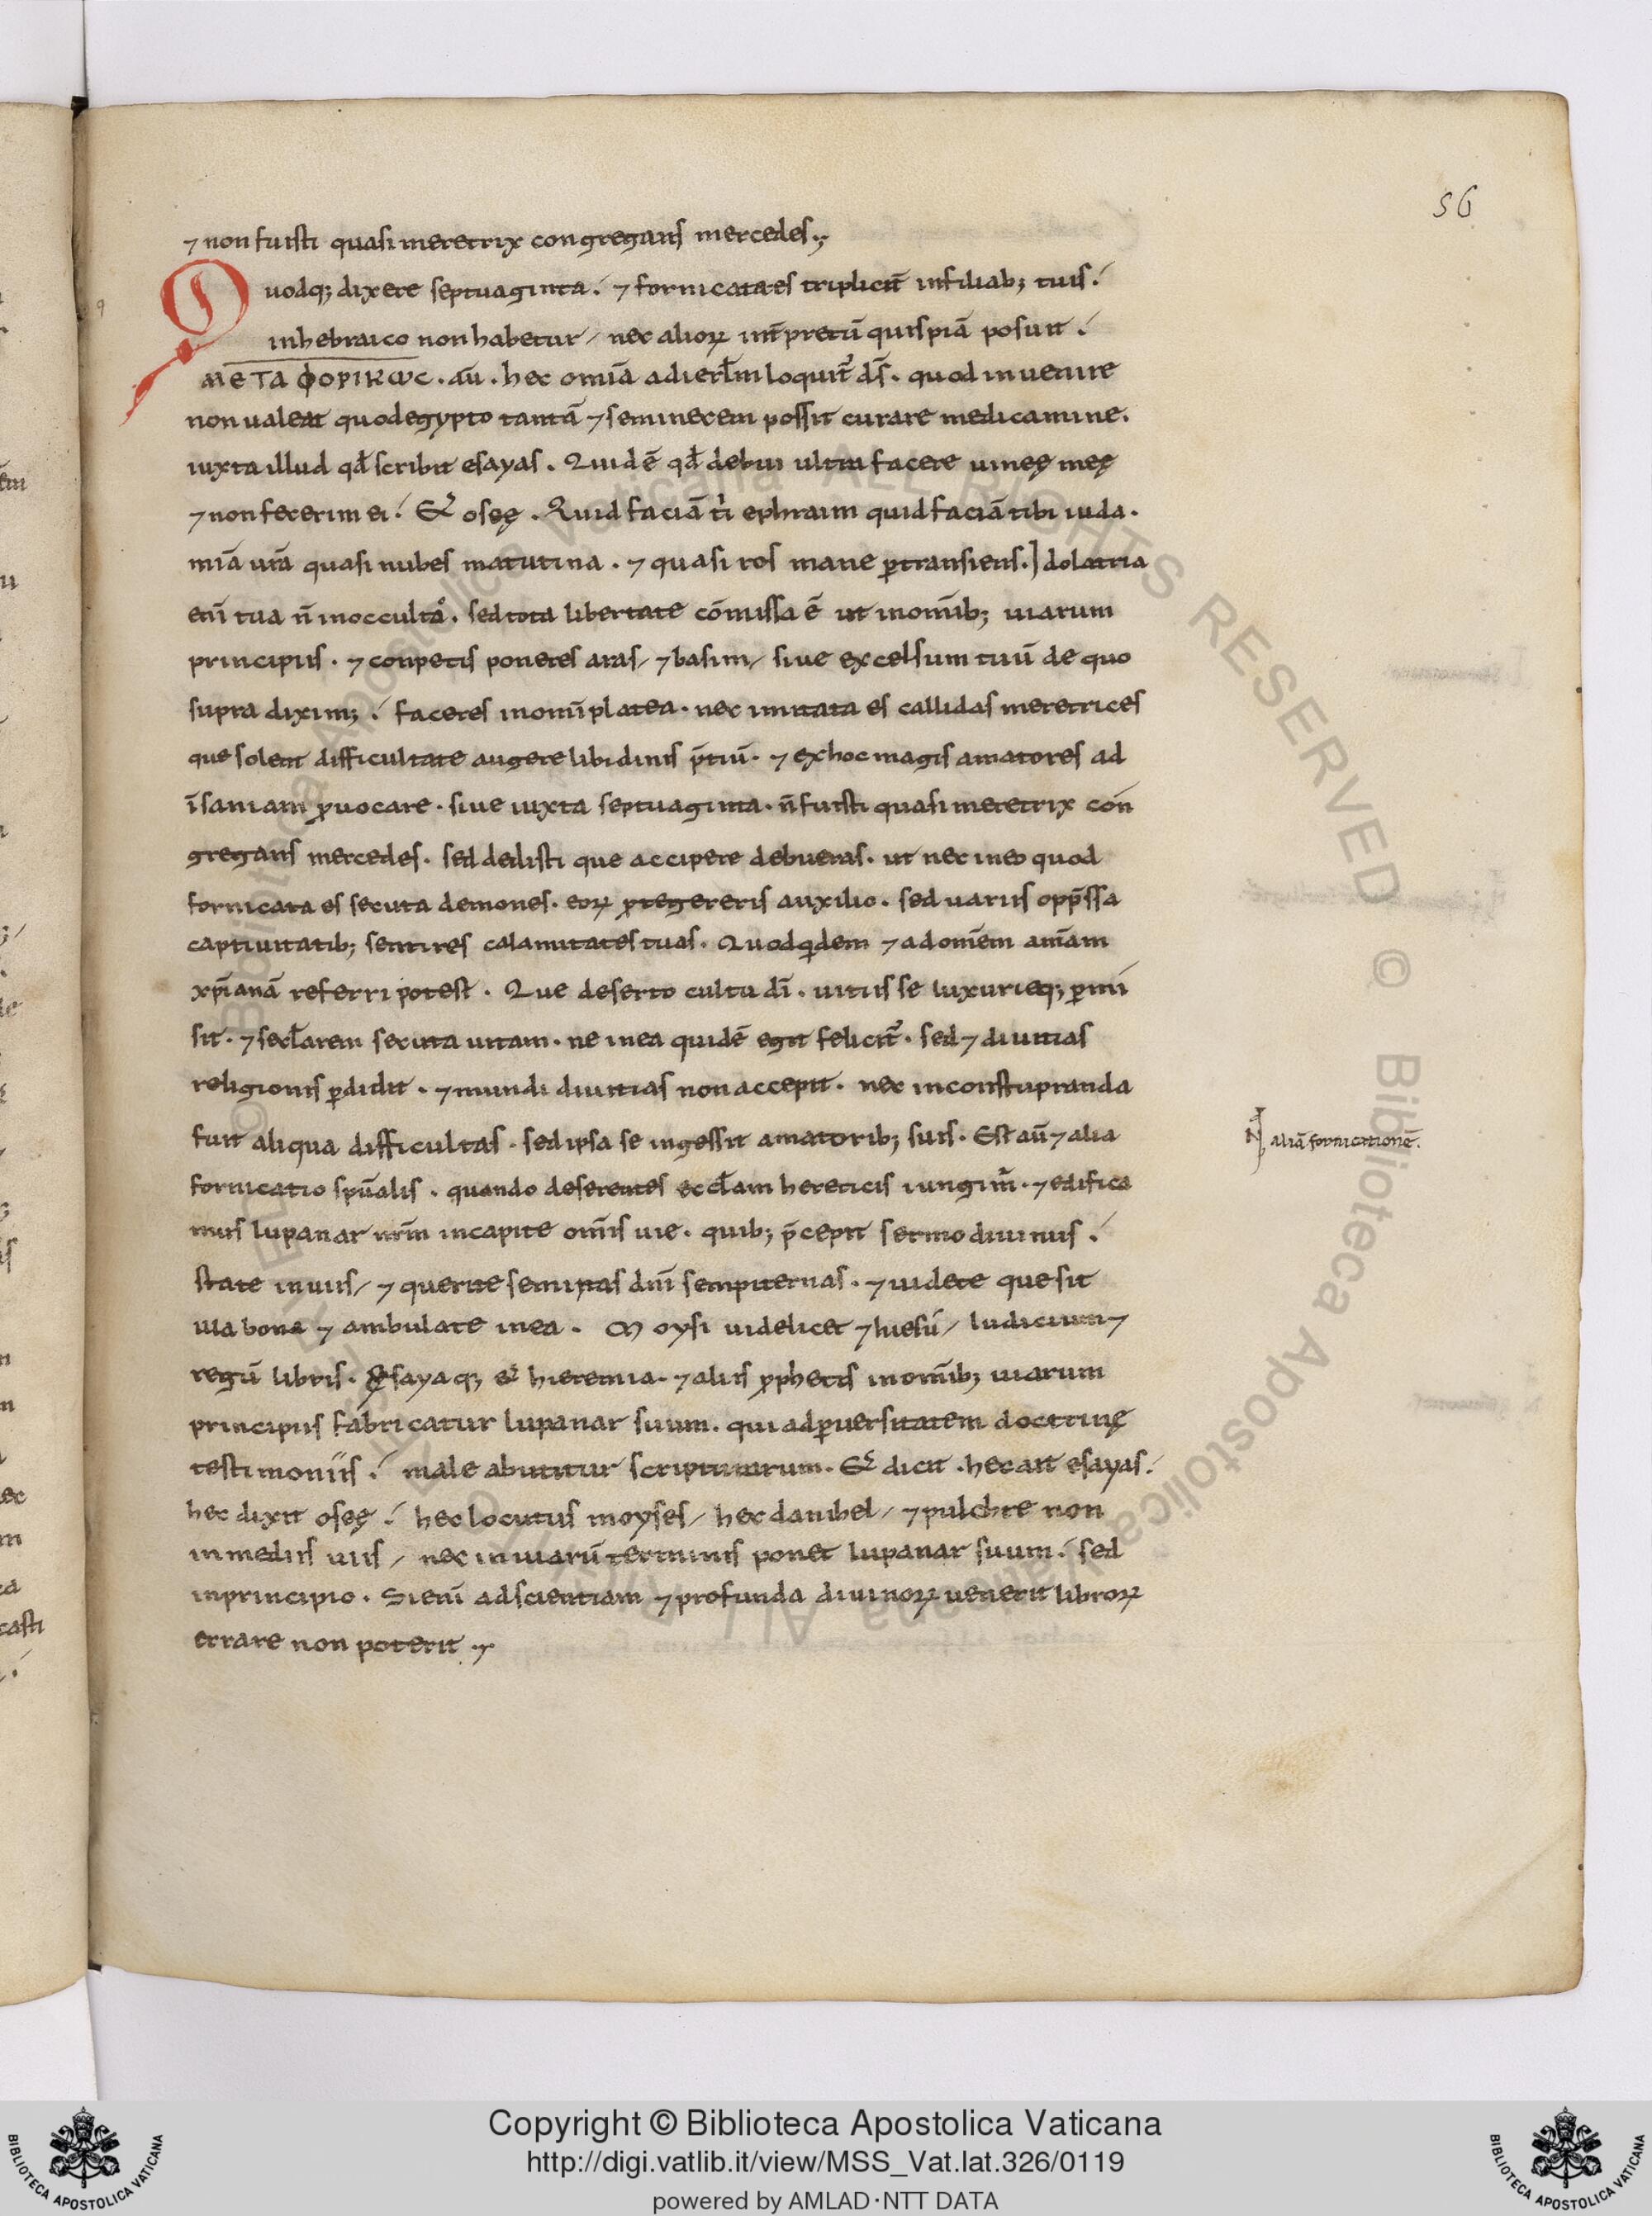 56
⁊ non fuisti quasi meretrix congregans mercedes.,
Quodq; dixere septuaginta.́ ⁊ fornicata es triplicit̄ in filiab; tuis.́
in hebraico non habetur / nec alioꝝ int̄pretū quispiā posuit .́
ΜΕΤΑΦΟΡΙΚΩC . aū . hec om̄ia ad ierl̄m loquit᷑ d̄s . quod inuenire
non ualeat quod egypto tantā ⁊ seminecem possit curare medicamine.
iuxta illud qđ scribit esayas . Quid ē qđ debui ultra facere uineę meę
⁊ non fecerim ei .́ Et oseę . Quid faciā t̄i ephraim quid faciā tibi iuda .
mīa ur̄a quasi nubes matutina . ⁊ quasi ros mane ꝑtransiens . Idolatria
eni̅ tua n̄ in occulto . sed tota libertate cōmissa ē ut in om̄ib; uiarum
principiis . ⁊ conpetis poneres aras / ⁊ basim / siue excelsum tuū de quo
supra dixim; .́ faceres in omi̅ platea . nec imitata es callidas meretrices
que solent difficultate augere libidinis p̄tiū . ⁊ ex hoc magis amatores ad
īsaniam ꝓuocare . siue iuxta septuaginta . n̄ fuisti quasi meretrix con
gregans mercedes . sed dedisti que accipere debueras . ut nec in eo quod
fornicata es secuta demones . eoꝝ ꝓtegereris auxilio . sed uariis opp̄ssa
captiuitatib; sentires calamitates tuas . Quod qidem ⁊ ad om̄em anīam
xp̄ianā referri potest . Que deserto cultu dī . uitiis se luxurieq; ꝑmi
sit . ⁊ secl̄arem secuta uitam . ne in ea quidē egit felicit᷑ . sed ⁊ diuitias
religionis ꝑdidit . ⁊ mundi diuitias non accepit . nec in constupranda
fuit aliqua difficultas . sed ipsa se ingessit amatorib; suis . Est aū ⁊ alia
fornicatio spūalis . quando deserentes eccl̄am hereticis iungim᷑ . ⁊ edifica
mus lupanar nr̄m in capite om̄is uie . quib; p̄cepit sermo diuinus .́
state in uiis / ⁊ querite semitas dn̄i sempiternas . ⁊ uidete que sit
uia bona ⁊ ambulate in ea . Moysi uidelicet ⁊ hiesū / Iudicum ⁊
regū libris . Esayaq; et hieremia . ⁊ aliis ꝓphetis in om̄ib; uiarum
principiis fabricatur lupanar suum . qui ad ꝑuersitatem doctrinę
testimoniis .́ male abutitur scripturarum . Et dicit . hec ait esayas .́
hec dixit oseę .́ hec locutus moyses / hec danihel / ⁊ pulchre non
in mediis uiis / nec in uiarū terminis ponet lupanar suum .́ sed
in principio . Si eni̅ ad scientiam ⁊ profunda diuinoꝝ uenerit libroꝝ
errare non poterit .,
aliā fornicationē.
Copyright © Biblioteca Apostolica Vaticana
http://digi.vatlib.it/view/MSS_Vat.lat.326/0119
powered by AMLAD·NTT DATA